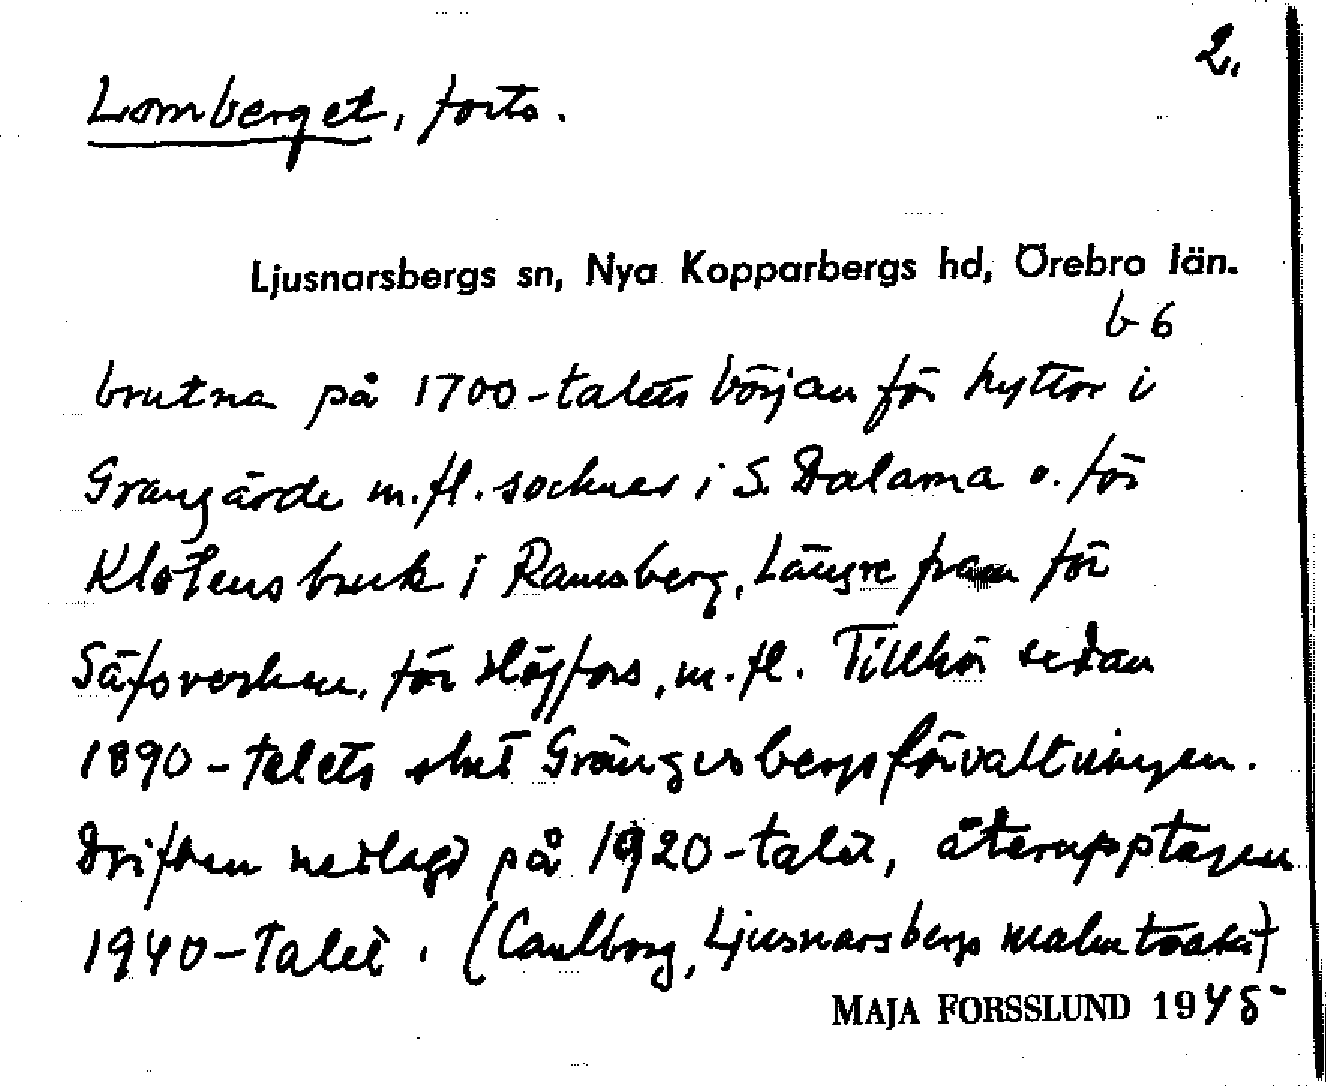 2.
Lomberget, forts.
Ljusnarsbergs sn, Nya Kopparbergs hd, Örebro län.
b 6
brutna på 1700-talets början för hyttor i
Grangärde m.fl. socknar i S. Dalarna o. för
Klotens bruk i Ramsberg, Längre fram för
Säfsverken, för Högfors, m.fl. Tillhör sedan
1890-talets slut Grängesbergsförvaltningen.
Driften nedlagd på 1920-talet, återupptagen
1940-talet. (Carlborg, Ljusnarsbergs malmtrakt)
MAJA FORSSLUND 1945